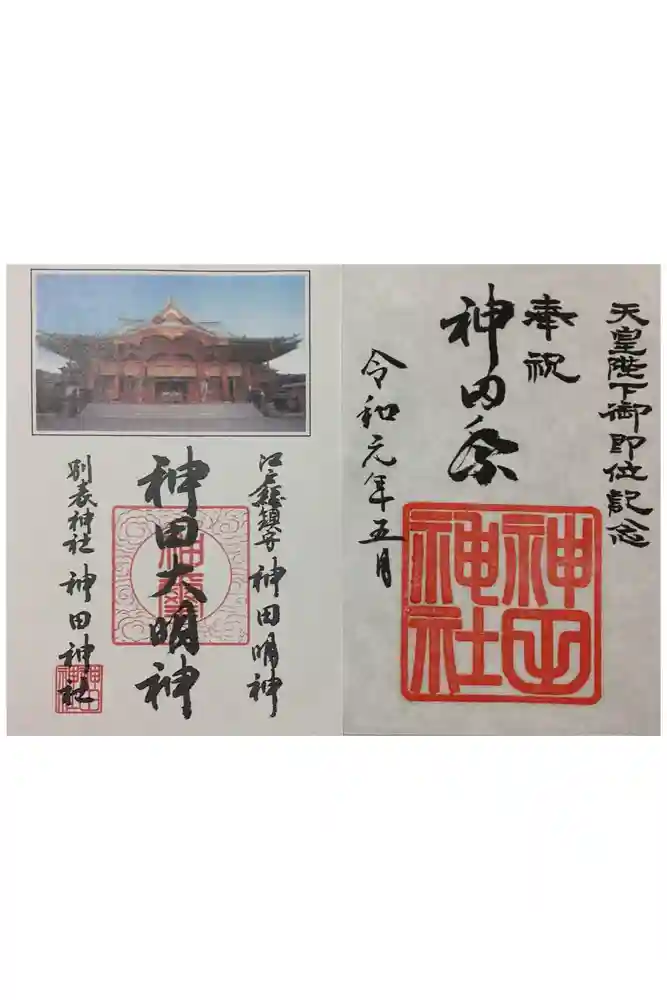 江戸総鎮守 神田明神
神田大明神
別表神社 神田神社
神田神社
天皇陛下御即位記念
奉祝
神田祭
令和元年五月
神田神社